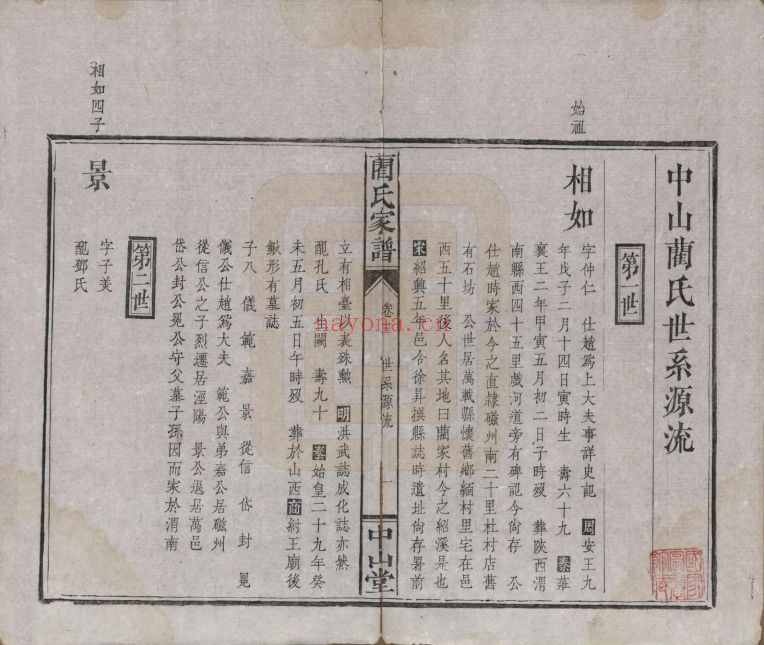 中山藺氏世系源流
第一世
始祖
相如
字仲仁 仕趙爲上大夫事詳史記 周安王九
年戊子二月十四日寅時生 壽六十九 秦莊
襄王二年甲寅五月初二日子時歿 葬陝西渭
南縣西四十五里戲河道旁有碑記今尚存 公
仕趙時家於今之直隷磁州南二十里杜村店舊
有石坊 公世居萬載縣懷舊鄉緬村里宅在邑
西五十里後人名其地曰藺家村今之紹溪是也
宋紹興五年邑令徐昇撰縣誌時遺址尚存署前
藺氏家譜
世系源流
一
中山堂
立有相臺以表殊勳 明洪武誌成化誌亦然
配孔氏 生闕 壽九十 秦始皇二十九年癸
未五月初五日午時歿 葬於山西商紂王廟後
鍬形有墓誌
子八 儀 範 嘉 景 從信 岱 封 冕
儀公仕趙爲大夫 範公與弟嘉公居磁州
從信公之子烈遷居涇陽 景公退居萬邑
岱公封公冕公守父墓子孫因而家於渭南
第二世
相如四子
景
字子美
配鄧氏
hayona.cn